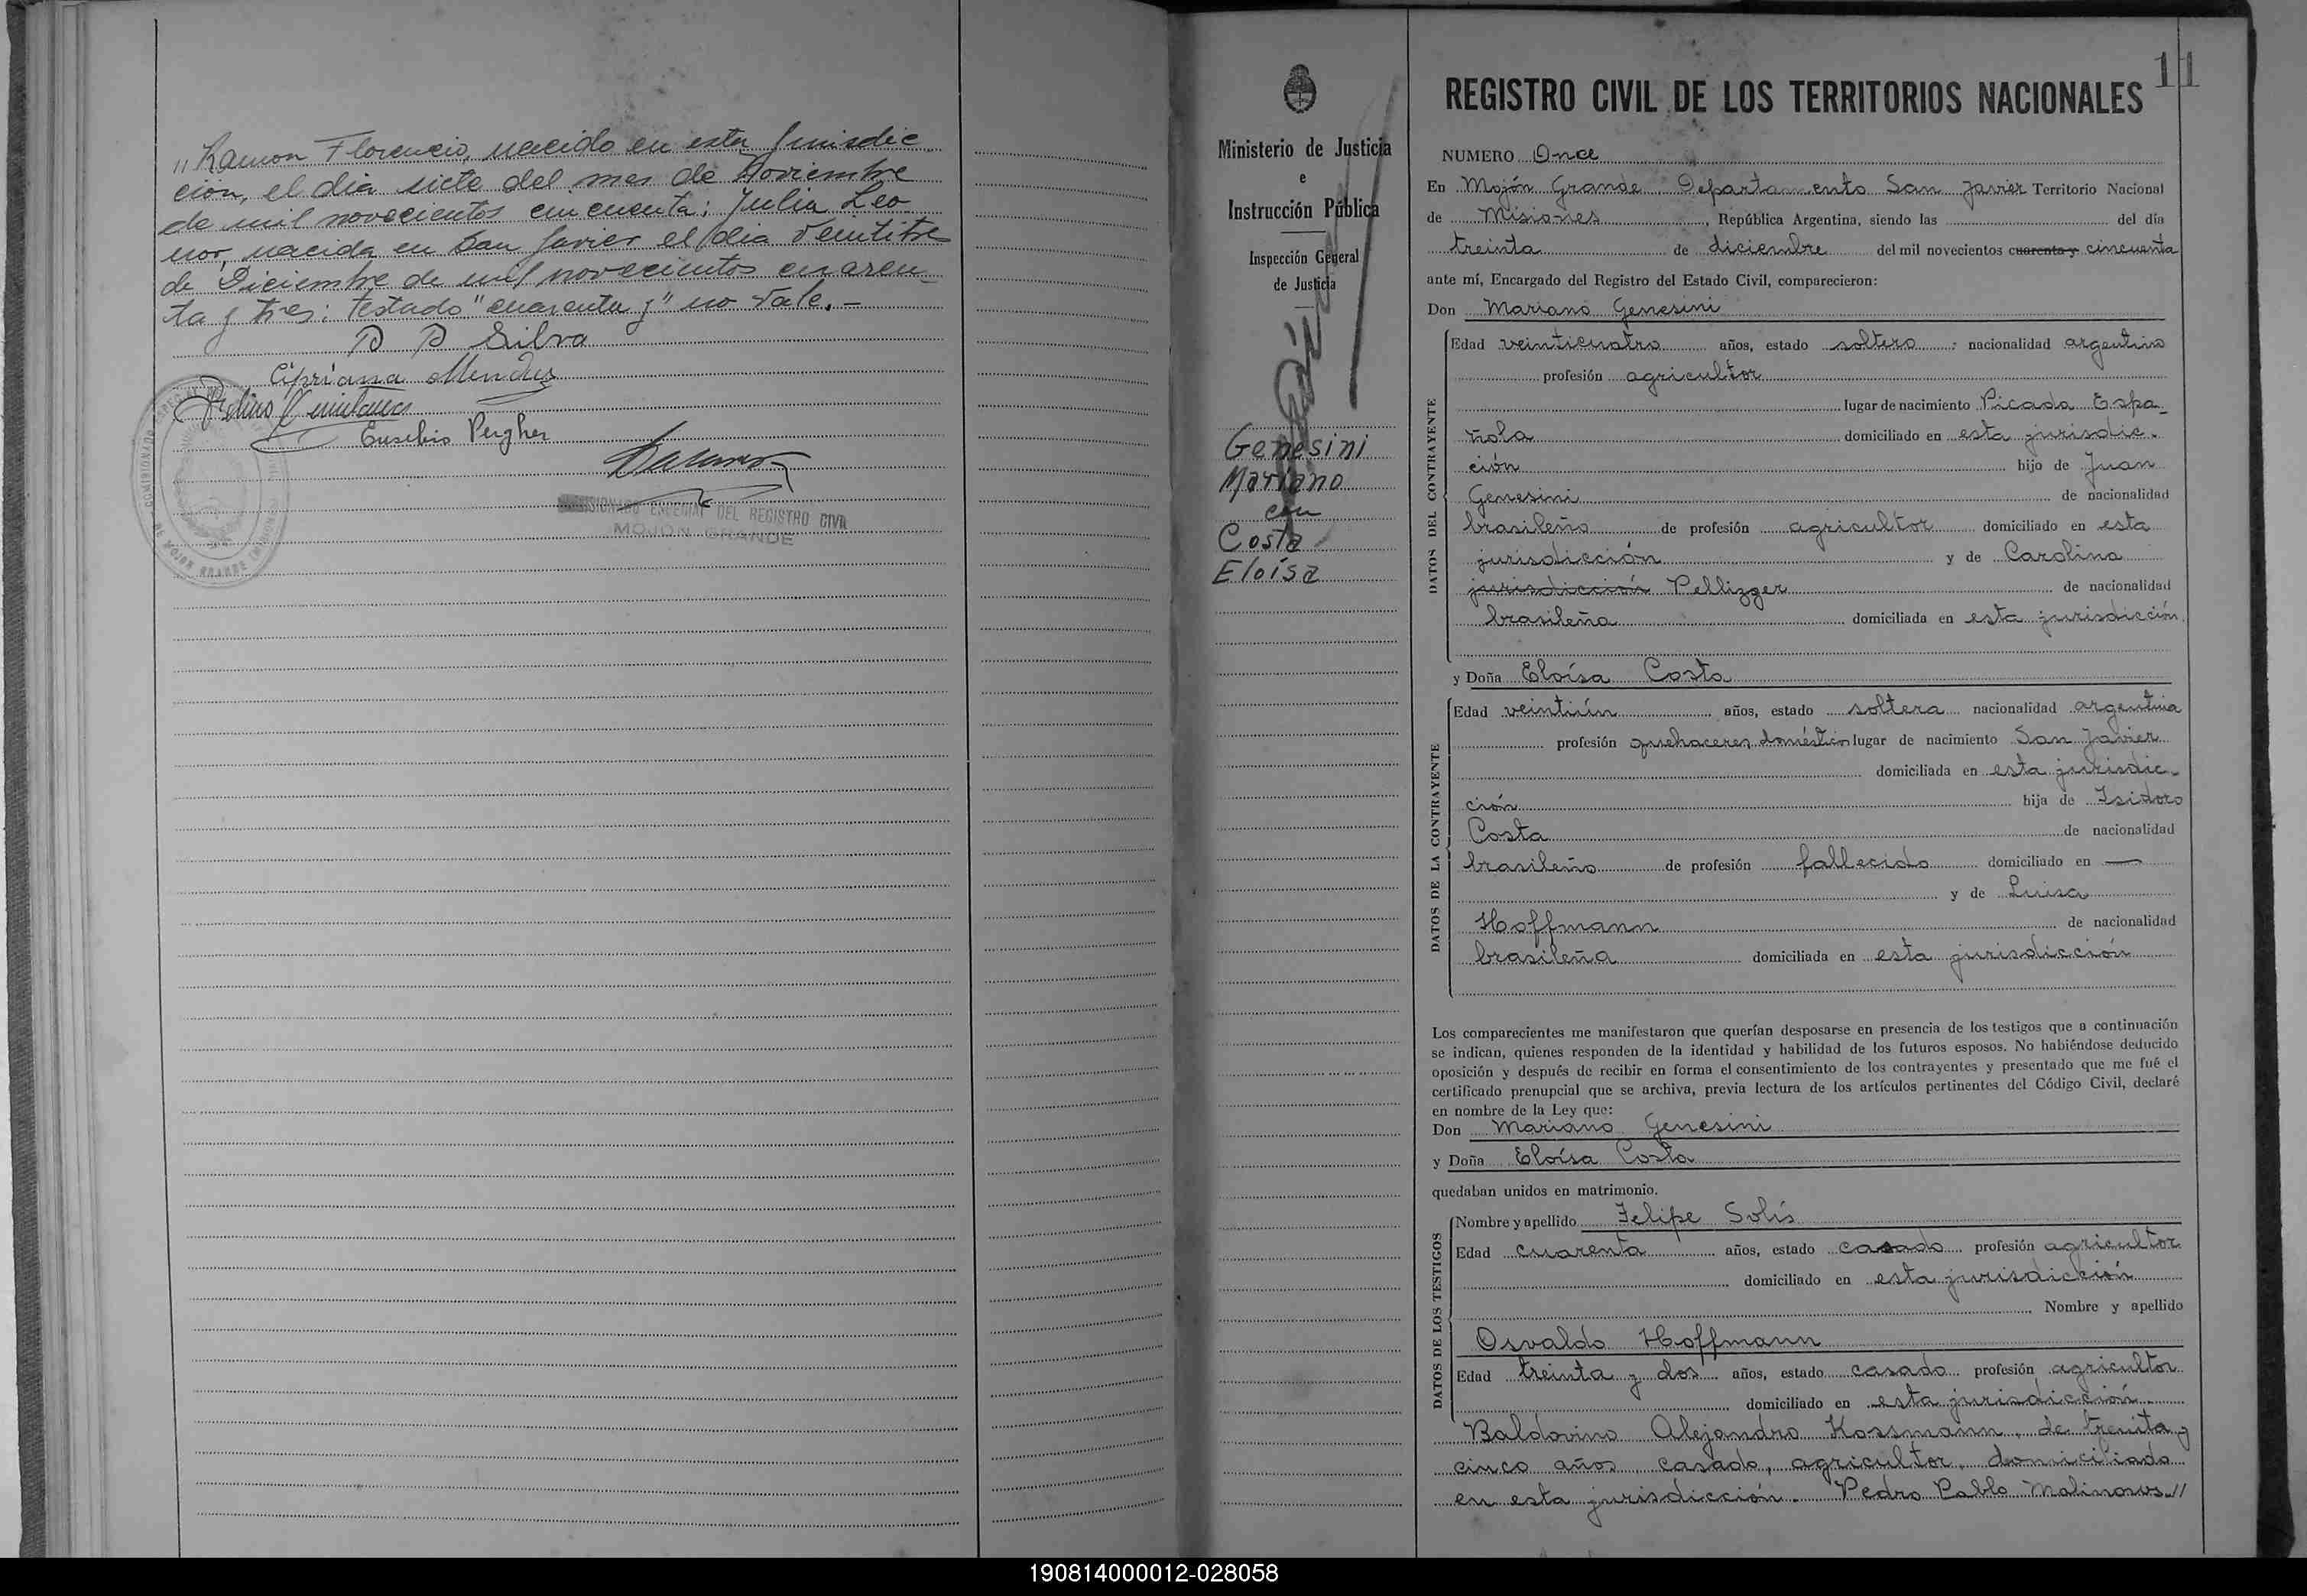 "Ramon Florencio, nacido en esta jurisdic
cion, el dia siete del mes de Noviembre
de mil novecientos cincuenta; Julia Leo
nor, nacida en San Javier el dia veintitres
de Diciembre de mil novecientos cuaren-
ta y tres: Testado "cuarenta y" no vale.-
P P Silva
Cipriana Mendez
Eusebio Pergher
COMISIONADO ESPECIAL DEL REGISTRO CIVIL
MOJON GRANDE
Ministerio de Justicia
e
Instrucción Pública
Inspección General
de Justicia
Genesini
Mariano
con
Costa
Eloísa
11
REGISTRO CIVIL DE LOS TERRITORIOS NACIONALES
NUMERO Once
En Mojón Grande, Departamento San Javier Territorio Nacional
de Misiones, República Argentina, siendo las del día
treinta de diciembre del mil novecientos cuarenta y cincuenta
ante mí, Encargado del Registro del Estado Civil, comparecieron:
Don Mariano Genesini
DATOS DEL CONTRAYENTE
Edad veinticuatro años, estado soltero ; nacionalidad argentino
profesión agricultor
lugar de nacimiento Picada Espa-
ñola domiciliado en esta jurisdic-
ción hijo de Juan
Genesini de nacionalidad
brasileño de profesión agricultor domiciliado en esta
jurisdicción y de Carolina
jurisdicción Pellizzer de nacionalidad
brasileña domiciliada en esta jurisdicción
y Doña Eloísa Costa
DATOS DE LA CONTRAYENTE
Edad veintiún años, estado soltera nacionalidad argentina
profesión quehaceres domésticos lugar de nacimiento San Javier
domiciliada en esta jurisdic-
ción hija de Isidoro
Costa de nacionalidad
brasileño de profesión fallecido domiciliado en —
y de Luisa
Hoffmann de nacionalidad
brasileña domiciliada en esta jurisdicción
Los comparecientes me manifestaron que querían desposarse en presencia de los testigos que a continuación
se indican, quienes responden de la identidad y habilidad de los futuros esposos. No habiéndose deducido
oposición y después de recibir en forma el consentimiento de los contrayentes y presentado que me fué el
certificado prenupcial que se archiva, previa lectura de los artículos pertinentes del Código Civil, declaré
en nombre de la Ley que:
Don Mariano Genesini
y Doña Eloísa Costa
quedaban unidos en matrimonio.
DATOS DE LOS TESTIGOS
Nombre y apellido Felipe Solís
Edad cuarenta años, estado casado profesión agricultor
domiciliado en esta jurisdicción
Nombre y apellido
Osvaldo Hoffmann
Edad treinta y dos años, estado casado profesión agricultor
domiciliado en esta jurisdicción
Baldovino Alejandro Kossmann, de treinta y
cinco años, casado, agricultor, domiciliado
en esta jurisdicción. Pedro Pablo
190814000012-028058